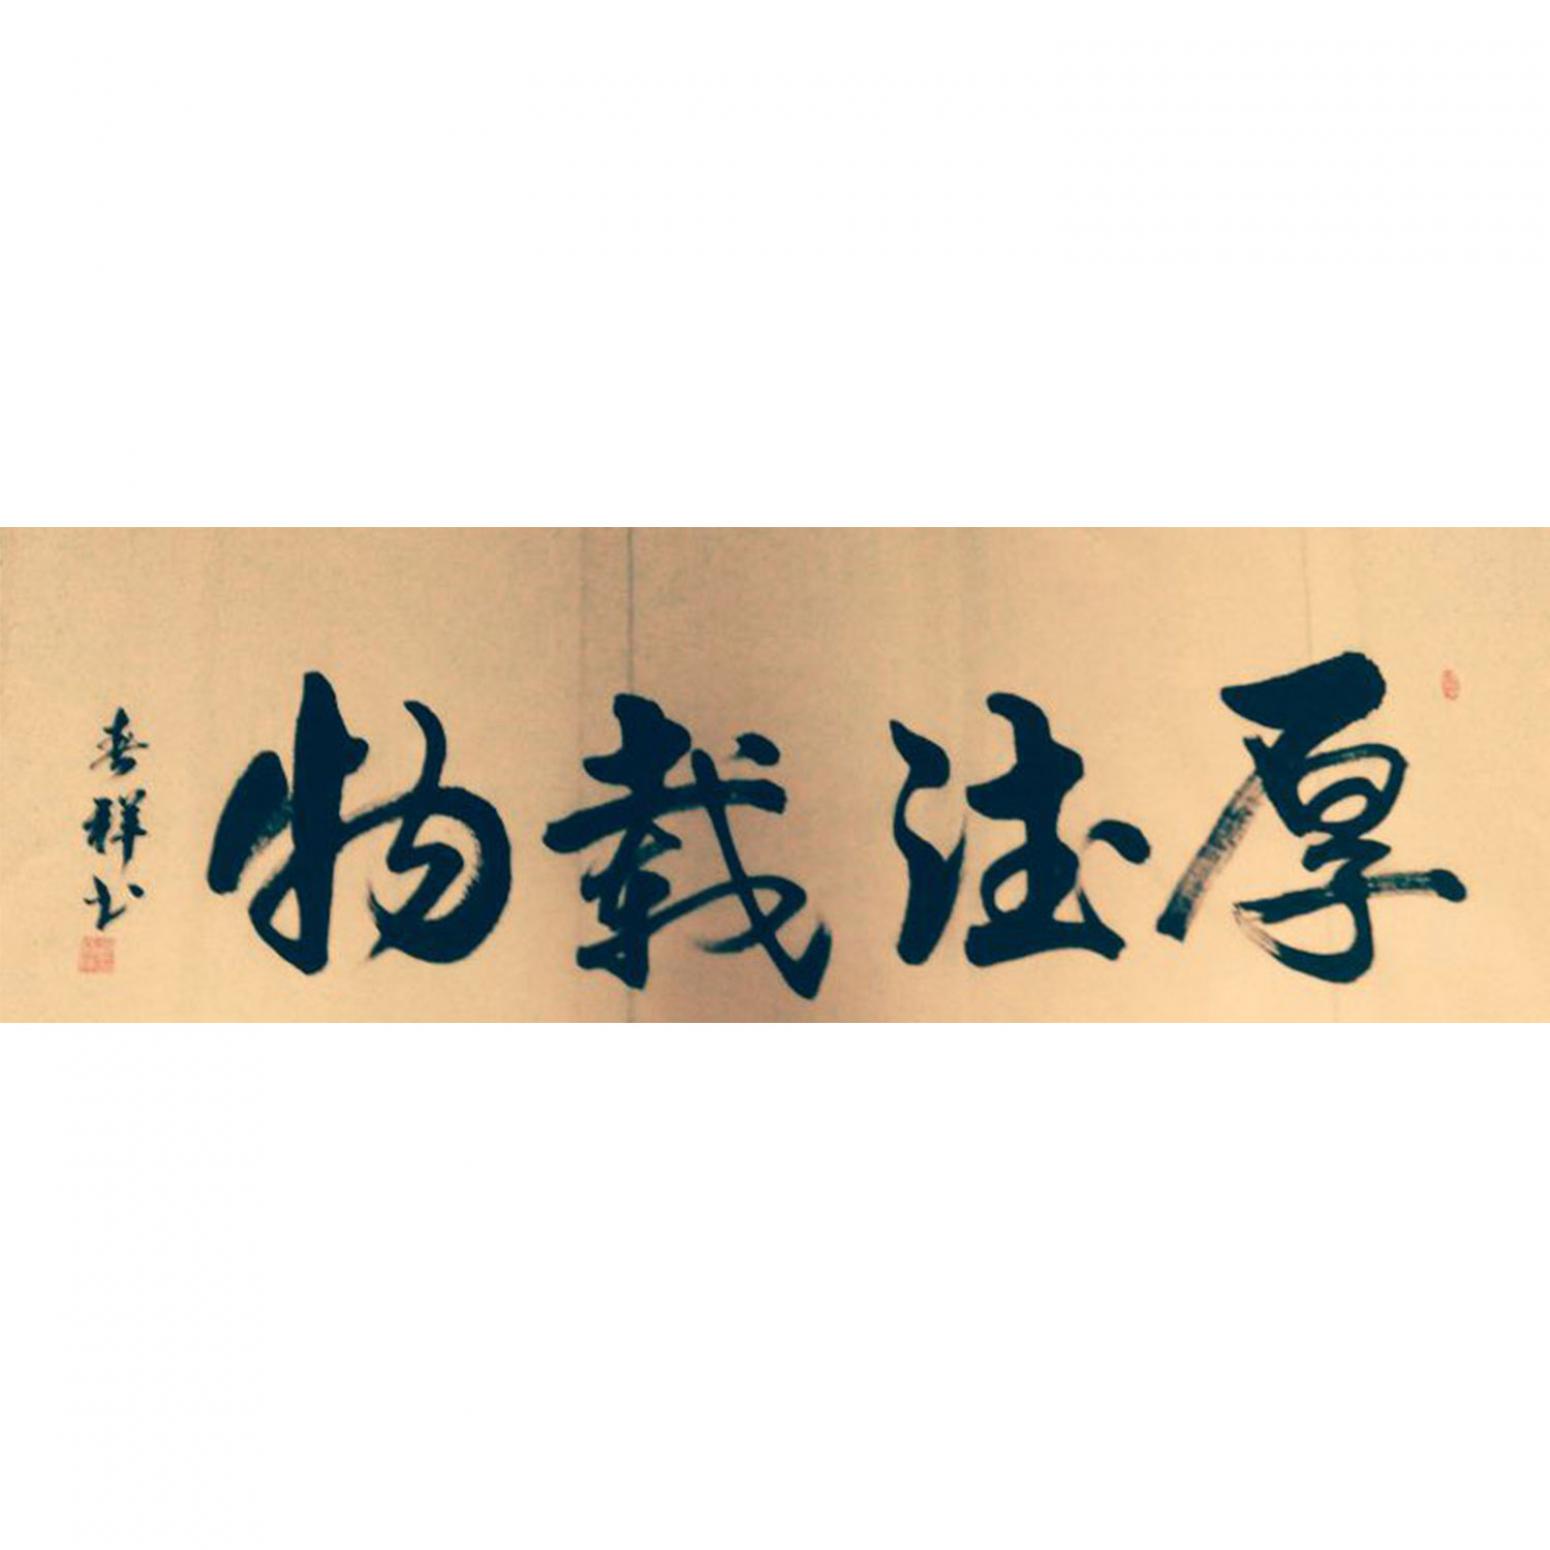 厚德载物
春祥书